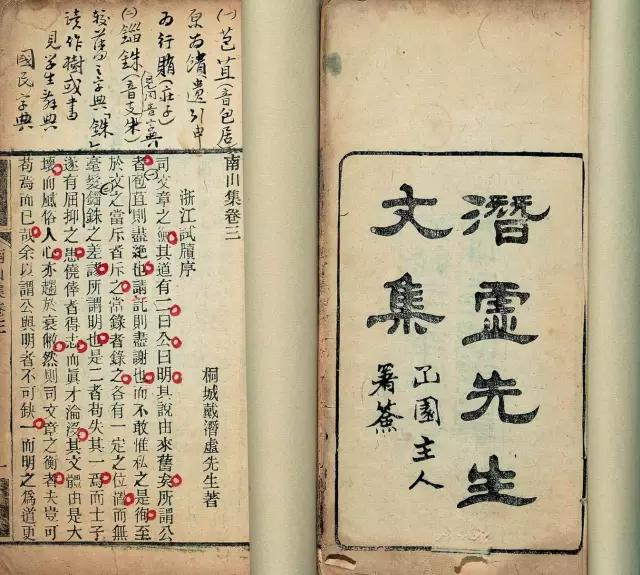 潛虛先生
文集
園主人
署簽
(一)苞苴(音包居)
原為饋遺引申
為行賄(莊子)
(二)錙銖(音支朱)
較舊之字典「銖」
讀作樹或書
見學生辭典
國民字典
南山集卷三
桐城戴潛虛先生著
浙江試牘序
司文章之衡其道有二曰公曰明其說由來舊矣所謂公
者苞苴則盡絶也請託則盡謝也而不敢惟私之是徇至
於文之當斥者斥之當錄者錄之各有一定之位置而無
毫髮錙銖之差謬所謂明也是二者苟失其一焉而士子
遂有屈抑之患僥倖者得志而眞才淪沒其文體由是大
壞而風俗人心亦趨於衰敝然則司文章之衡者夫豈可
苟焉而已哉余以謂公與明者不可缺一而明之爲道更